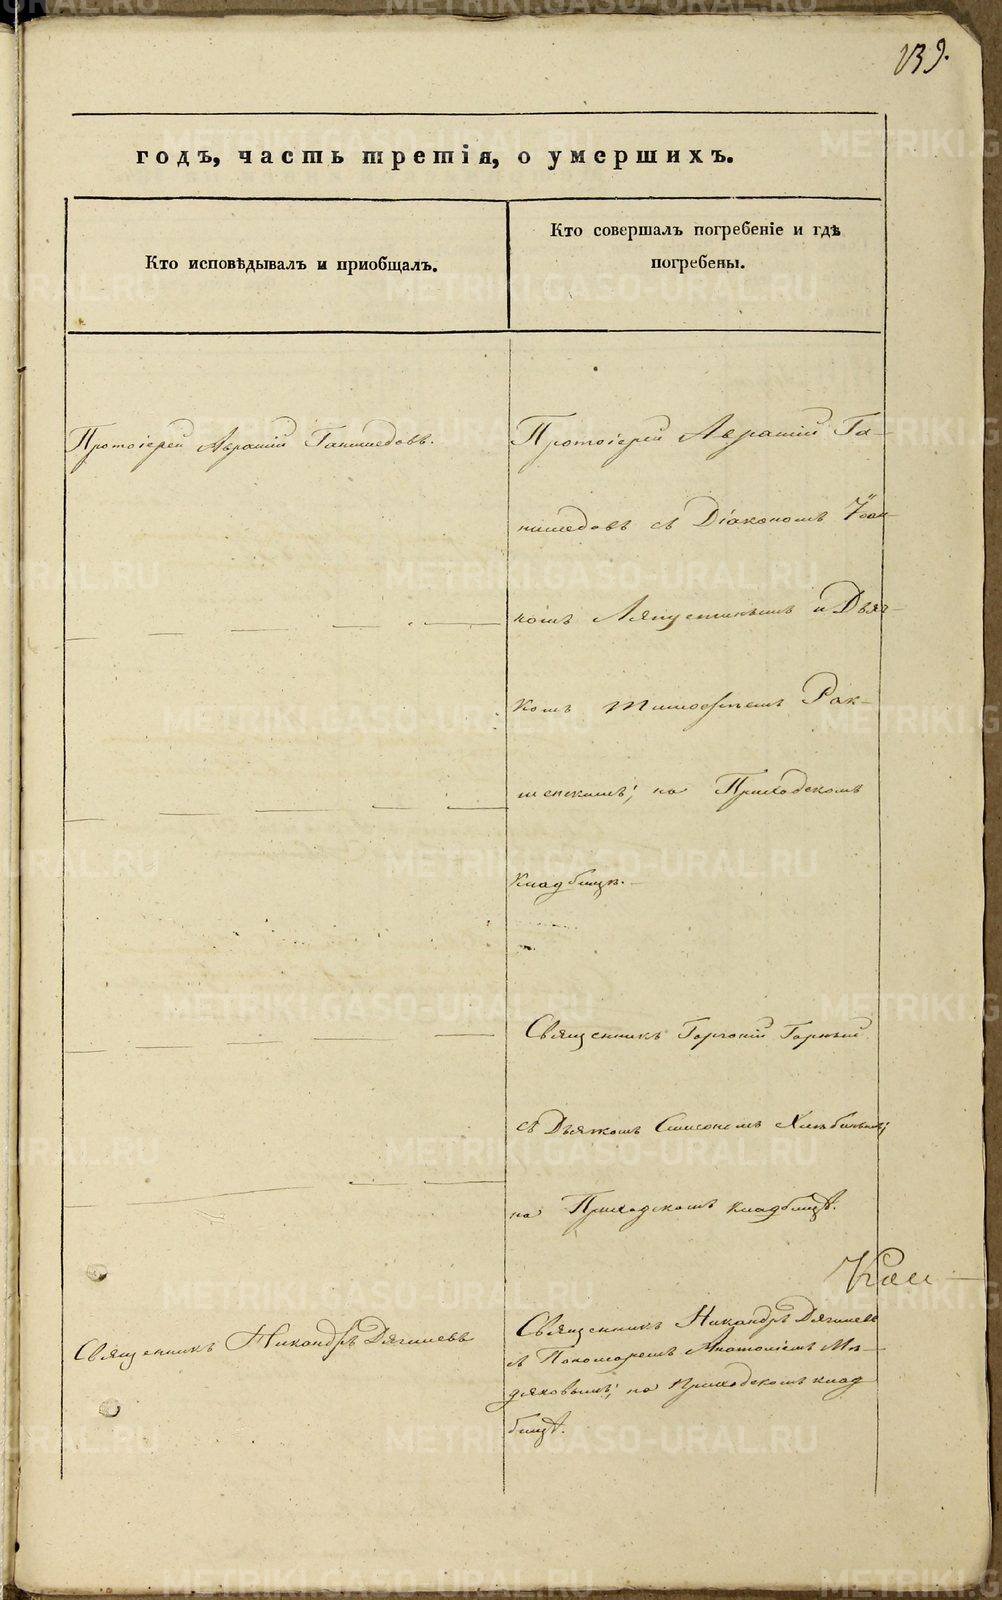 139.
годъ, часть третія, о умершихъ.
Кто исповѣдывалъ и приобщалъ.
Кто совершалъ погребеніе и гдѣ
погребены.
Протоіерей Аврамій
Протоіерей Аврамій
съ Діакономъ Іоан-
номъ Ляпустинымъ и Дьяч-
комъ Тимофеемъ Рак-
шенскимъ; на Приходскомъ
кладбищѣ.
Священникъ Горгоній Горный
съ Дьячкомъ Симеономъ Хлѣбинымъ;
на Приходскомъ кладбищѣ.
Священникъ Никандръ Дягилевъ
Священникъ Никандръ Дягилевъ
съ Пономаремъ Анатоліемъ
на Приходскомъ клад
бищѣ.
METRIKI.GASO-URAL.RU